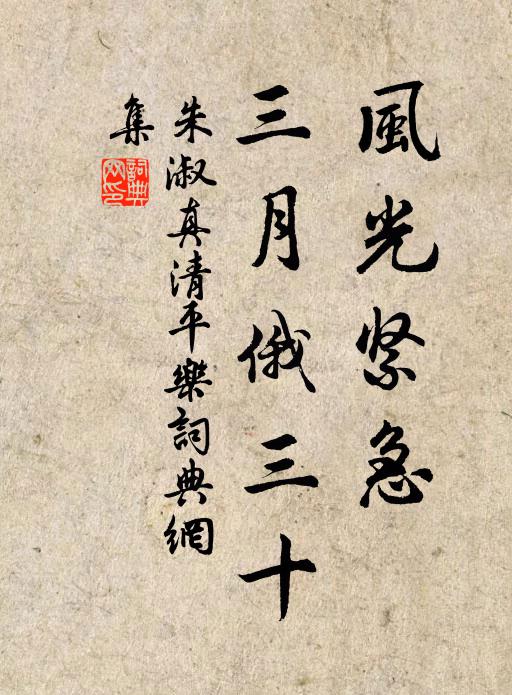 風光緊急
三月俄三十
朱淑真清平樂詞典網
集
詞典網印